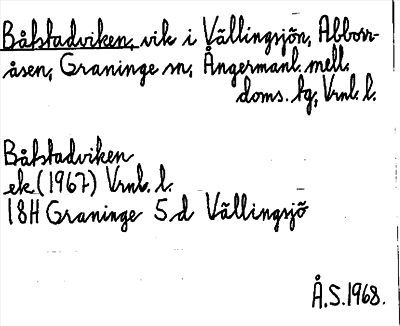 Båtstadviken, vik i Vällingsjön, Abborr-
åsen, Graninge sn, Ångermanl. mell.
doms. tg, Vrnl. l.
Båtstadviken
ek (1967) Vrnl. l.
18H Graninge 5d Vällingsjö
Å.S. 1968.